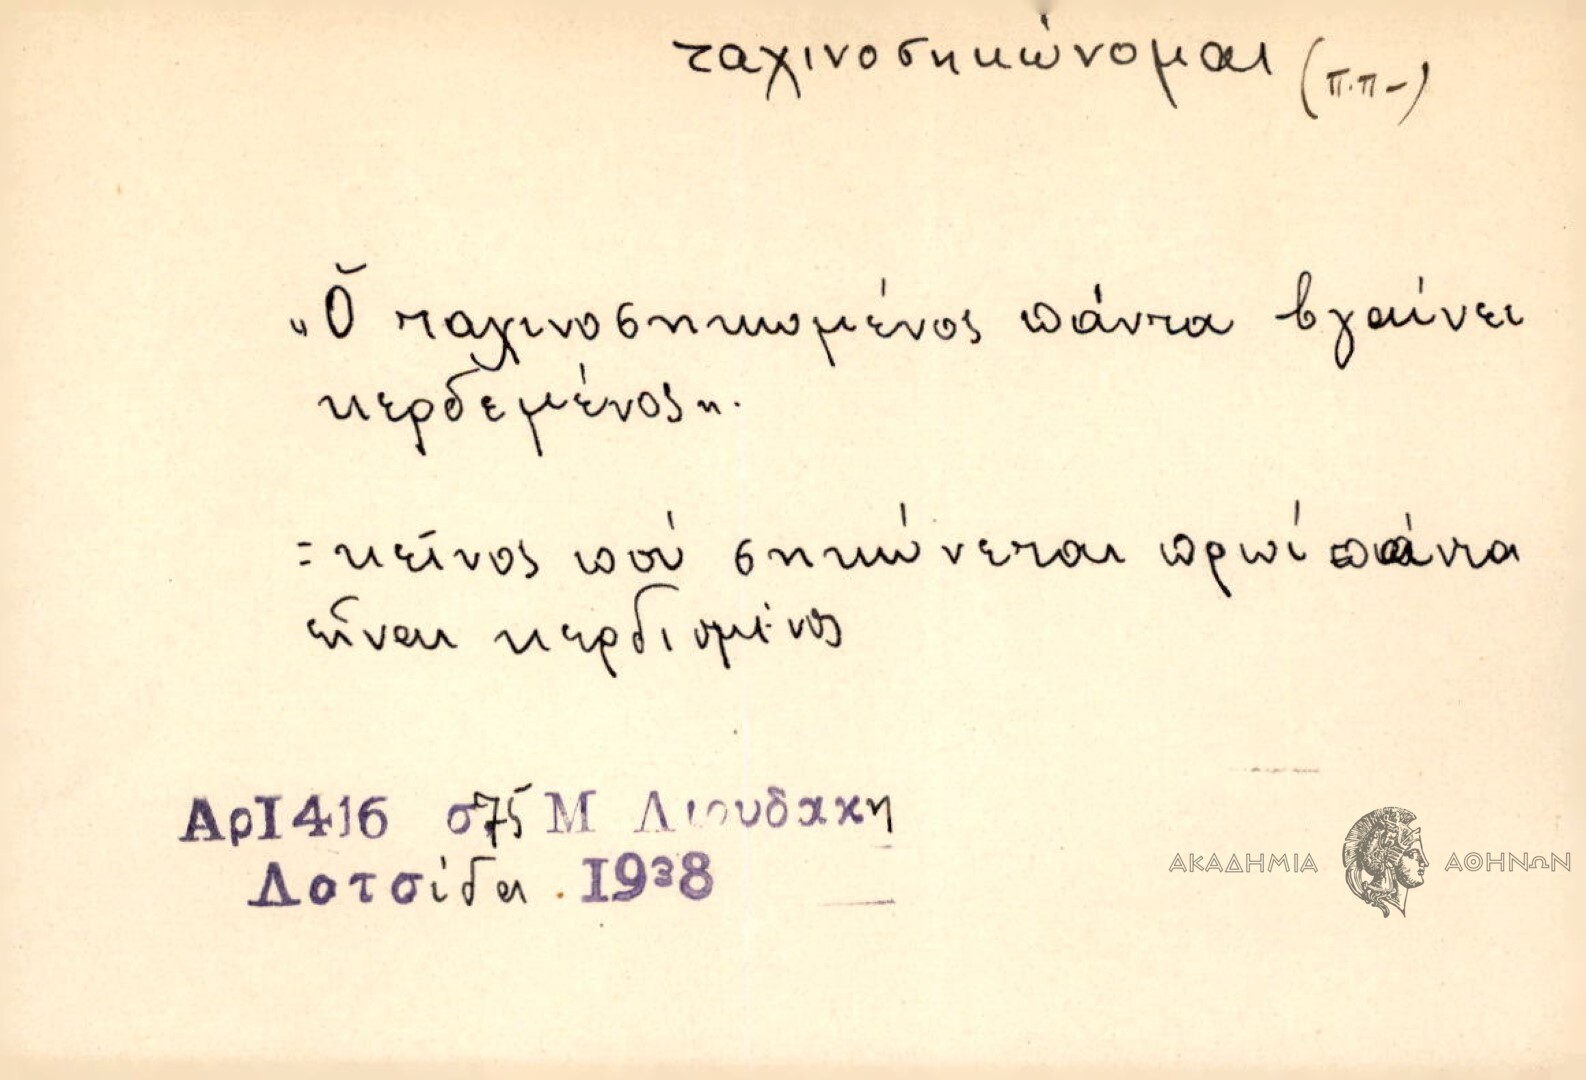 ταχινοσηκώνομαι (π.π-)
"Ὁ ταχινοσηκωμένος πάντα βγαίνει
κερδεμένος".
=κεῖνος πού σηκώνεται πρωί πάντα
εἶναι κερδισμένος
Αρ1416 σ75 Μ Λιουδακη
Λατσίδα . 1938
ΑΚΑΔΗΜΙΑ ΑΘΗΝΩΝ